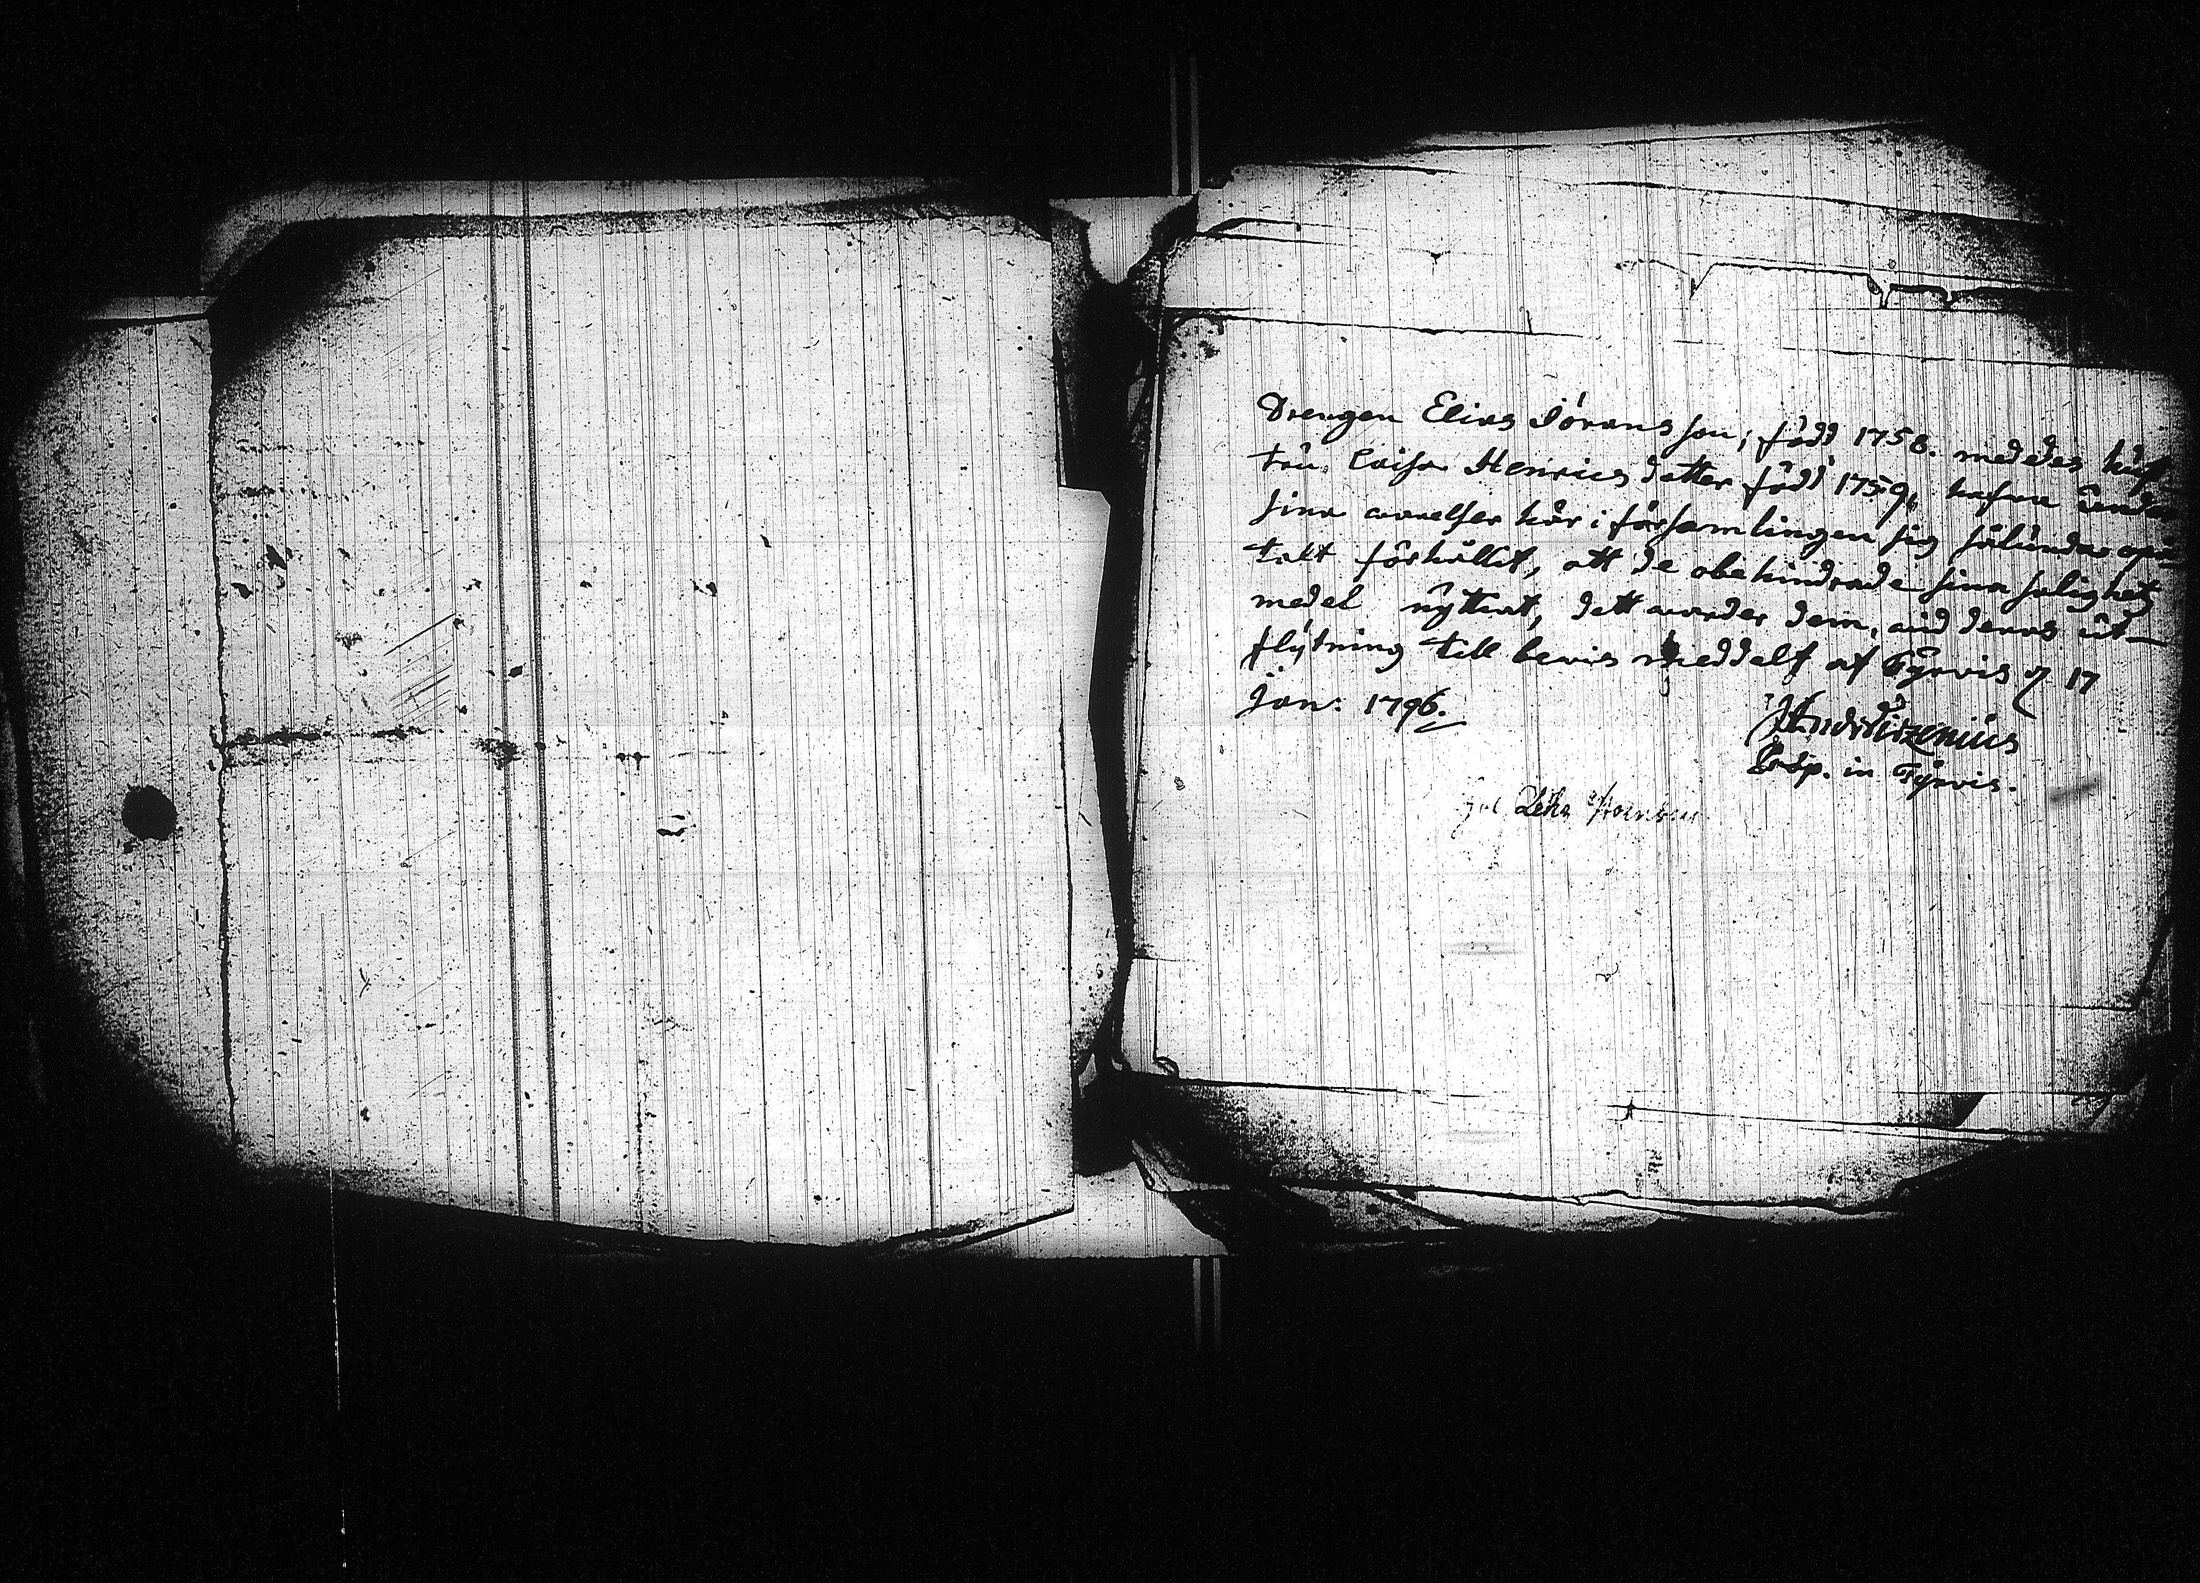 Drengen Elias Jöransson, född 1758. med des huſ
tru, Caisa Henricsdotter född 1759, hafva under
sina vavelser här i församlingen sig sålundar
takt förhållit, att de obehindrade sina salighets
medel nyttiat, dett varder dem, vid deras ut-
flytning till bevis meddelt af Tyrvis 17
Jan: 1796.
Prep. in Tyrvis.